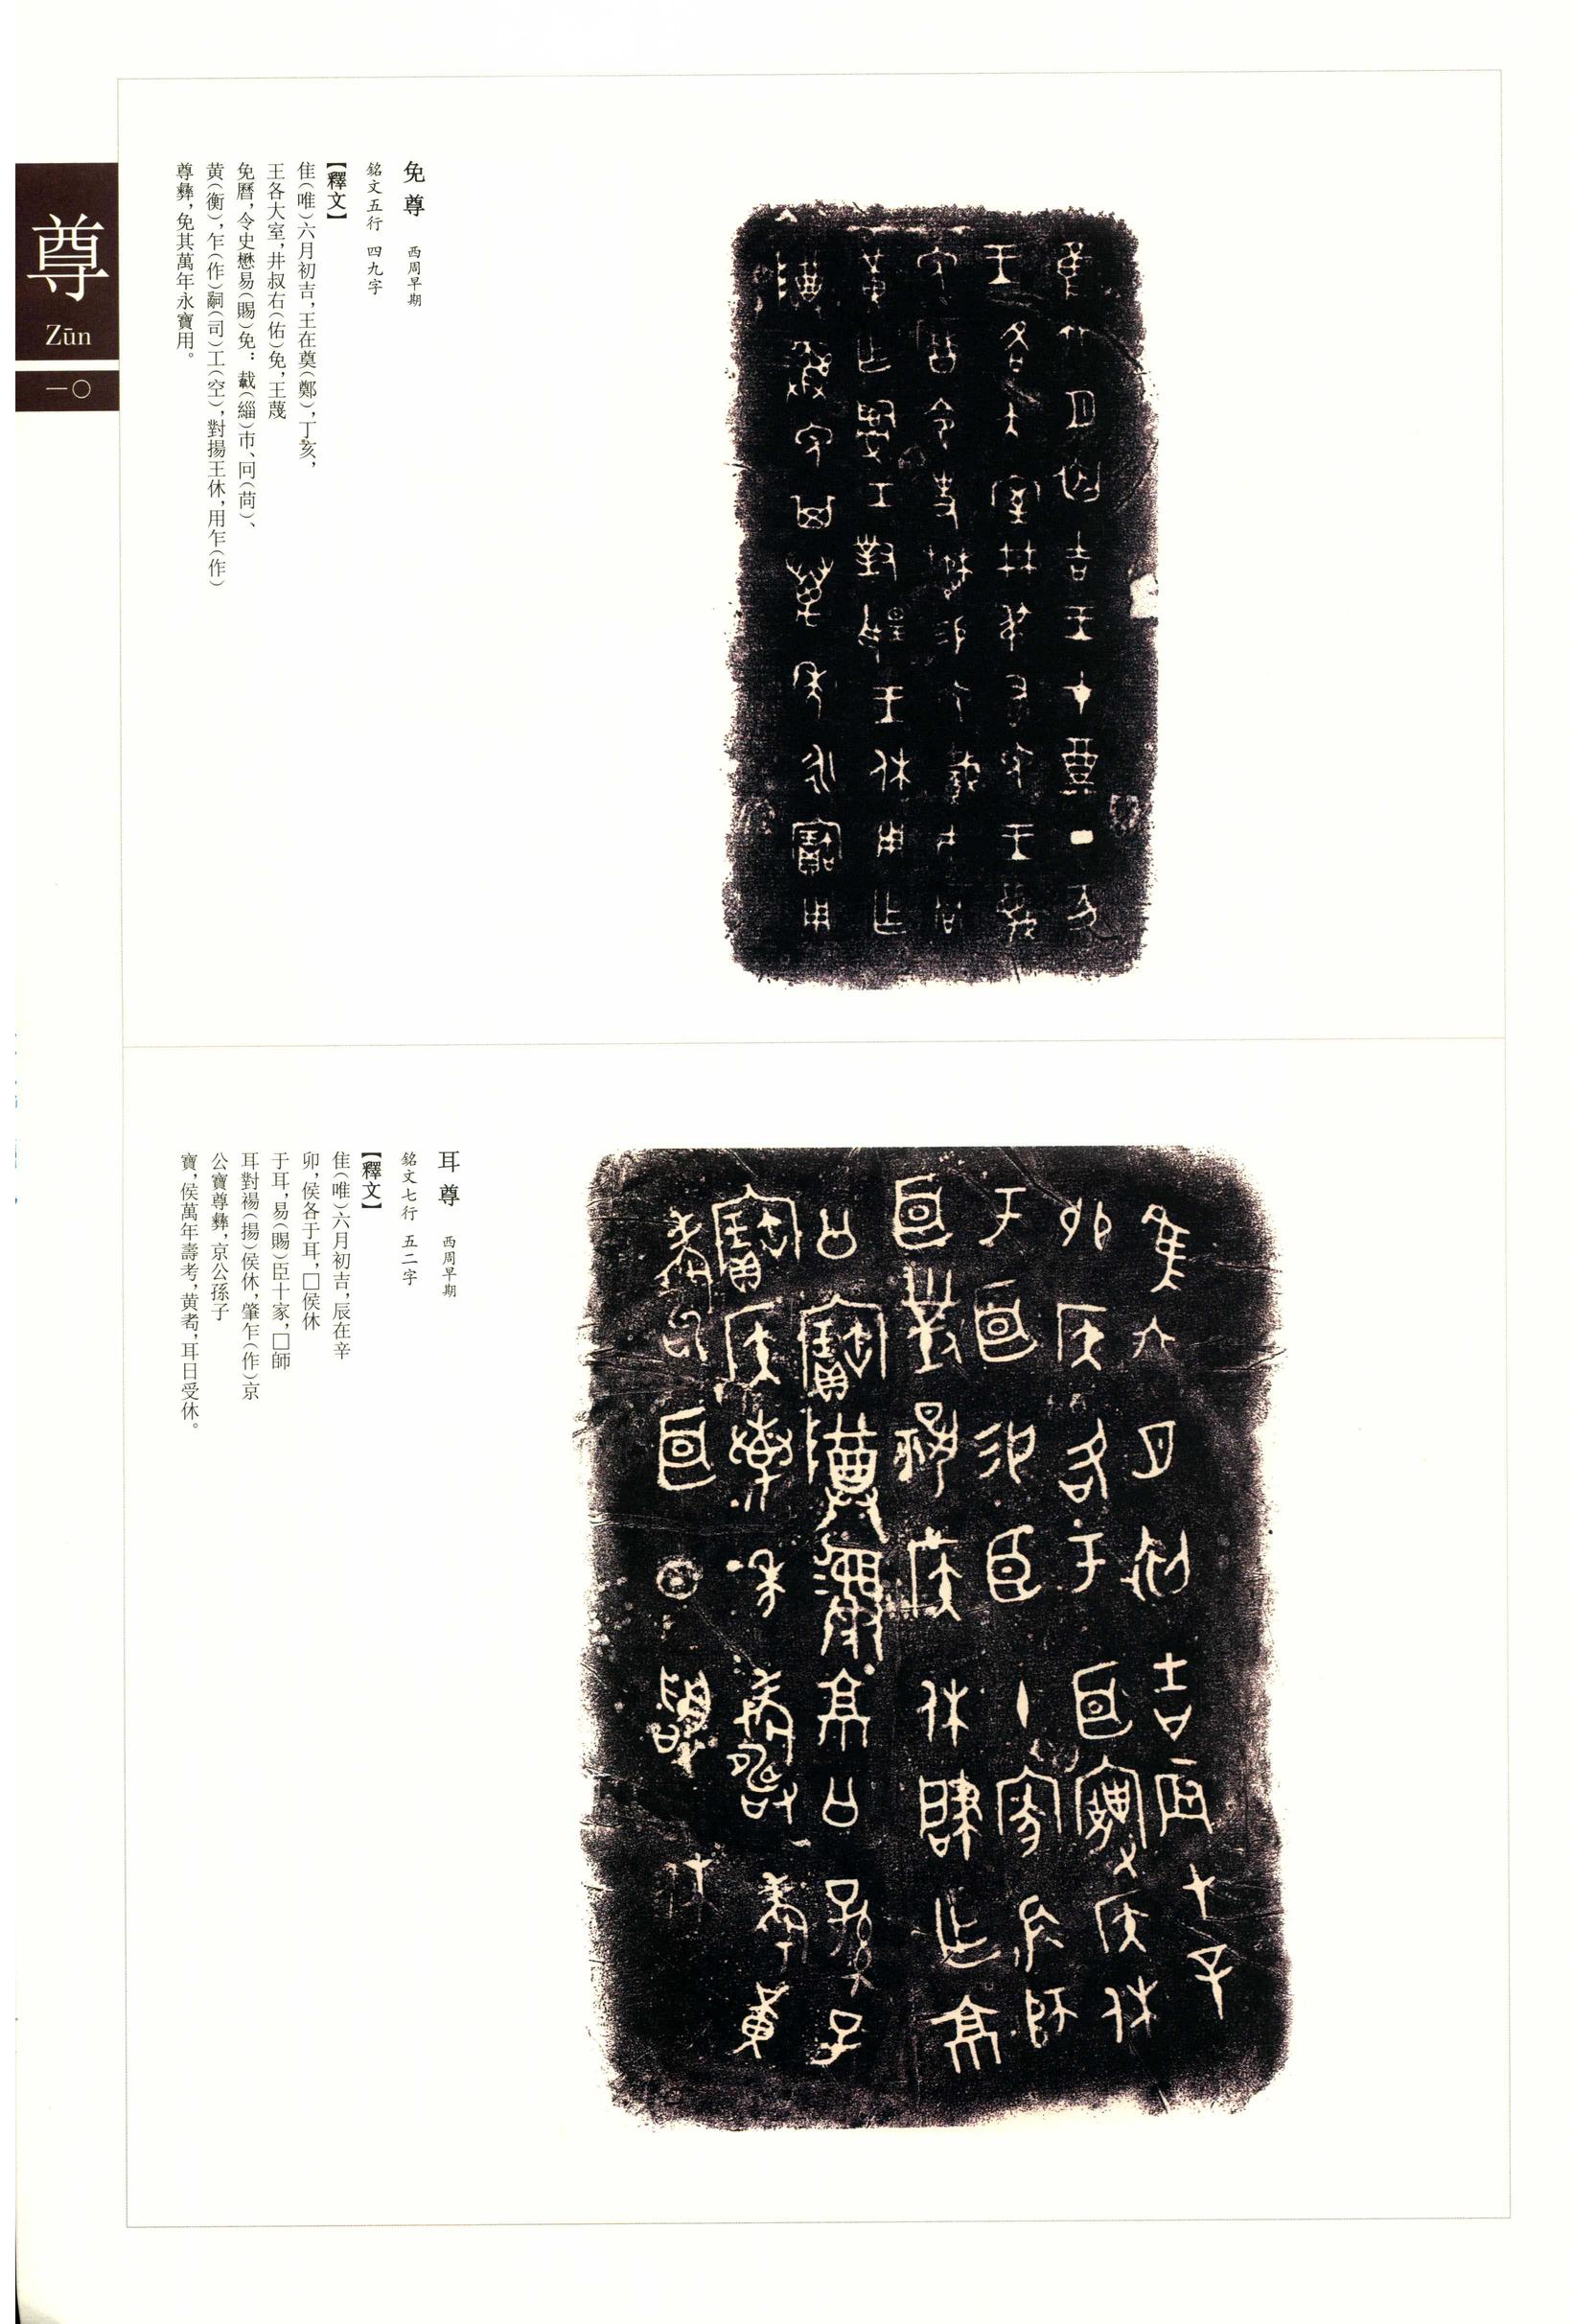 尊
Zūn
一〇
免尊 西周早期
銘文五行 四九字
【釋文】
隹（唯）六月初吉，王在奠（鄭），丁亥，
王各大室，井叔右（佑）免，王蔑
免曆，令史懋易（賜）免：𩎟（緇）巿、冋（苘）、
黄（衡），乍（作）嗣（司）工（空），對揚王休，用乍（作）
尊彝，免其萬年永寶用。
耳尊 西周早期
銘文七行 五二字
【釋文】
隹（唯）六月初吉，辰在辛
卯，侯各于耳，□侯休
于耳，易（賜）臣十家，□師
耳對禓（揚）侯休，肇乍（作）京
公寶尊彝，京公孫子
寶，侯萬年壽考，黄耇，耳日受休。